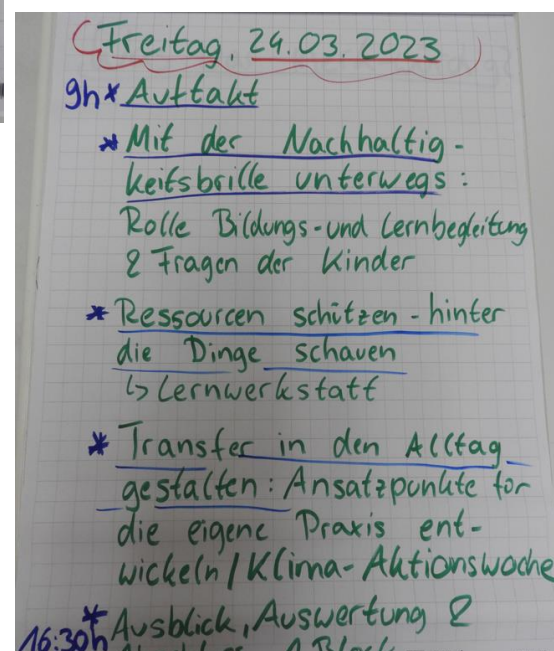 Freitag, 24.03.2023
9h * Auftakt
* Mit der Nachhaltig-
keitsbrille unterwegs:
Rolle Bildungs- und Lernbegleitung
& Fragen der Kinder
* Ressourcen schützen - hinter
die Dinge schauen
↳ Lernwerkstatt
* Transfer in den Alltag
gestalten: Ansatzpunkte für
die eigene Praxis ent-
wickeln / Klima-Aktionswoche
* Ausblick, Auswertung &
16:30h